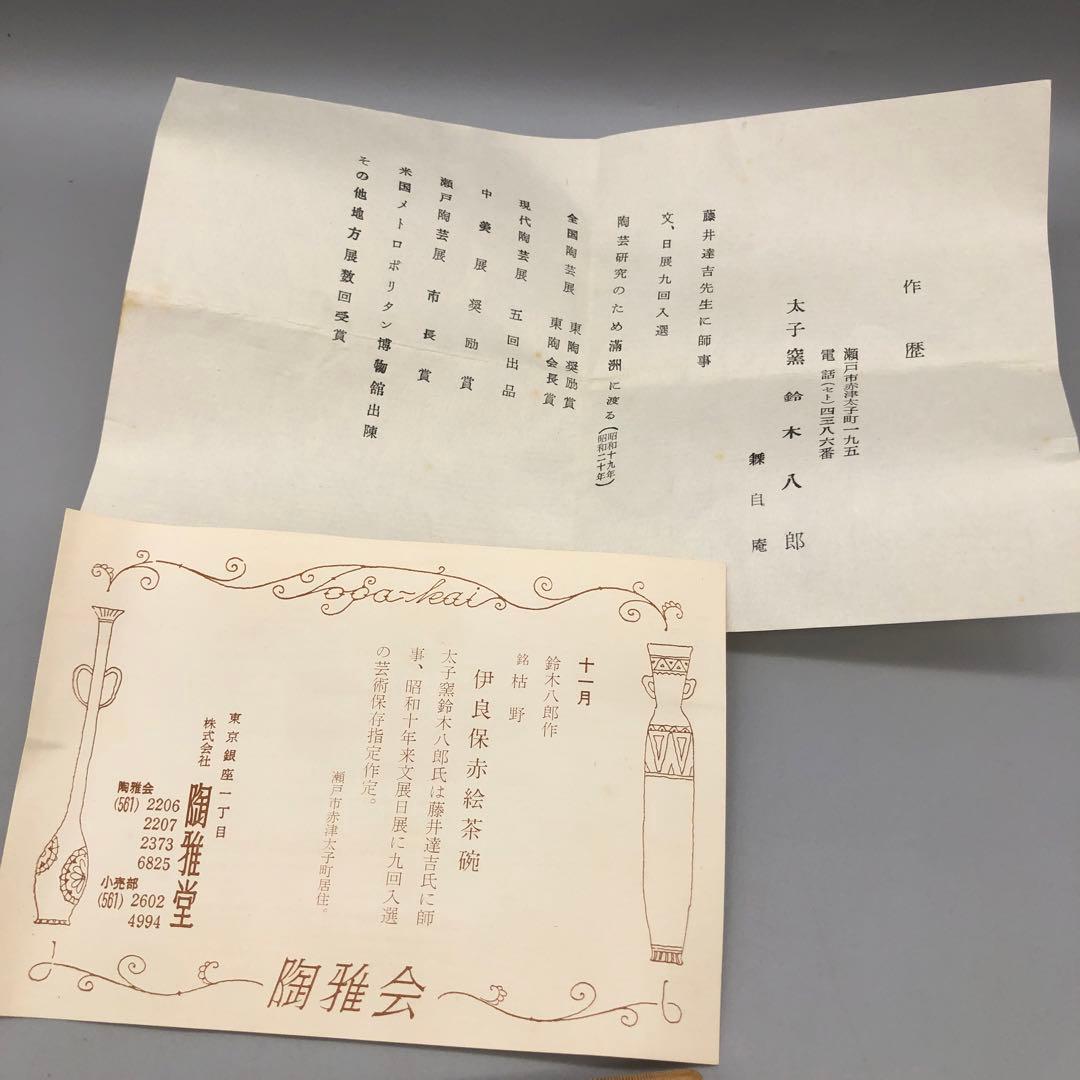 作歴
瀬戸市赤津太子町一九五
電話(セト)四三八六番
太子窯 鈴木八郎
自庵
藤井達吉先生に師事
文、日展九回入選
陶芸研究のため満洲に渡る(昭和十九年 昭和二十年)
全国陶芸展 東陶奨励賞
東陶会長賞
現代陶芸展 五回出品
中美展 奨励賞
瀬戸陶芸展 市長賞
米国メトロポリタン博物館出陳
その他地方展数回受賞
Toga-kai
十一月
鈴木八郎作
銘 枯野
伊良保赤絵茶碗
太子窯鈴木八郎氏は藤井達吉氏に師
事、昭和十年来文展日展に九回入選
の芸術保存指定作定。
瀬戸市赤津太子町居住。
東京銀座一丁目
株式会社 陶雅堂
陶雅会
(561) 2206
2207
2373
6825
小売部
(561) 2602
4994
陶雅会